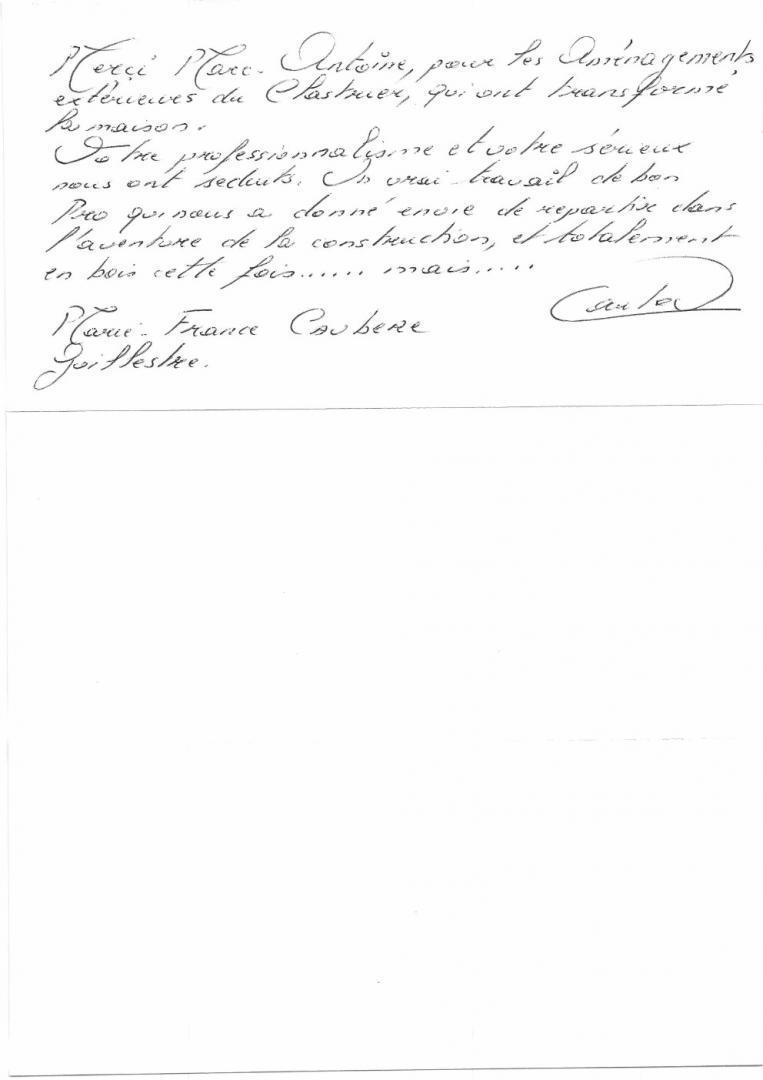 Merçi Marc-Antoine, pour les Aménagements
extérieures du Clastrier, qui ont transformé
la maison.
Votre professionnalisme et votre sérieux
nous ont seduits. Un vrai travail de bon
Pro qui nous a donné envie de repartire dans
l'aventure de la construction, et totalement
en bois cette fois...... mais.....
Marie-France Caubere
Guillestre.